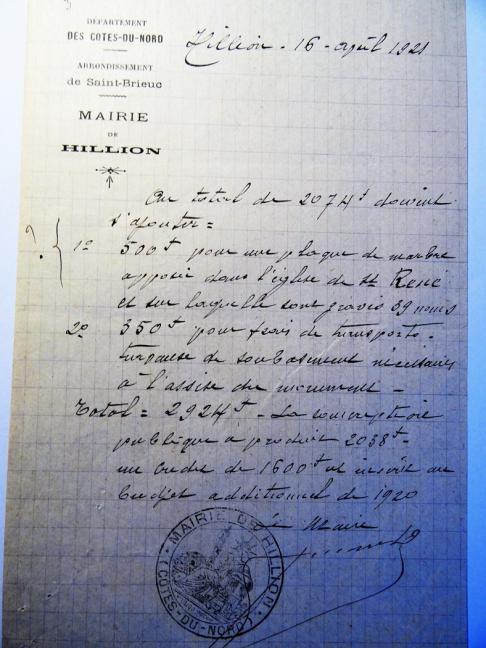 DÉPARTEMENT
DES COTES-DU-NORD
ARRONDISSEMENT
de Saint-Brieuc
MAIRIE
DE
HILLION
Hillion - 16 - april 1921
Au total de 2074f doivent
s'ajouter =
? 1º 500f pour une plaque de marbre
apposée dans l'église de St René
et sur laquelle sont gravés 39 noms
2º 350f pour frais de transports.
de soubassement nécessaires
à l'assise du monument -
Total = 2924f - La souscription
publique a produit 2038f -
un crédit de 1600f est inscrit au
budget additionnel de 1920
Le Maire
MAIRIE DE HILLION
(COTES-DU-NORD)